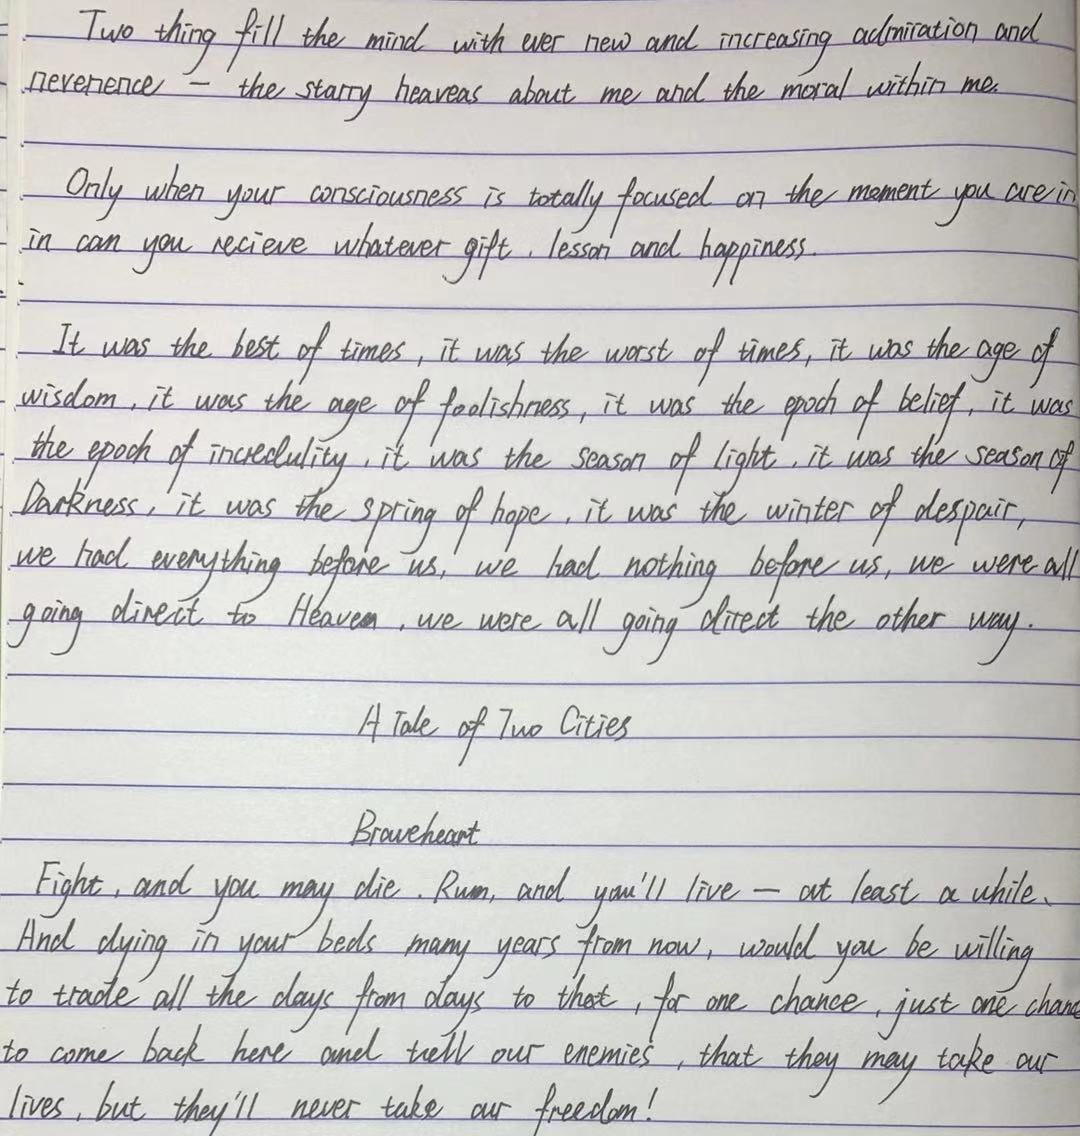 Two thing fill the mind with ever new and increasing admiration and
neverence – the starry heaveas about me and the moral within me.
Only when your consciousness is totally focused on the moment you are in
in can you recieve whatever gift, lesson and happiness.
It was the best of times, it was the worst of times, it was the age of
wisdom, it was the age of foolishness, it was the epoch of belief, it was
the epoch of incredulity, it was the season of light, it was the season of
Darkness, it was the spring of hope, it was the winter of despair,
we had everything before us, we had nothing before us, we were all
going direct to Heaven, we were all going direct the other way.
A Tale of Two Cities
Braveheart
Fight, and you may die. Run, and you'll live – at least a while.
And dying in your beds many years from now, would you be willing
to trade all the days from days to that, for one chance, just one chance
to come back here and tell our enemies, that they may take our
lives, but they'll never take our freedom!